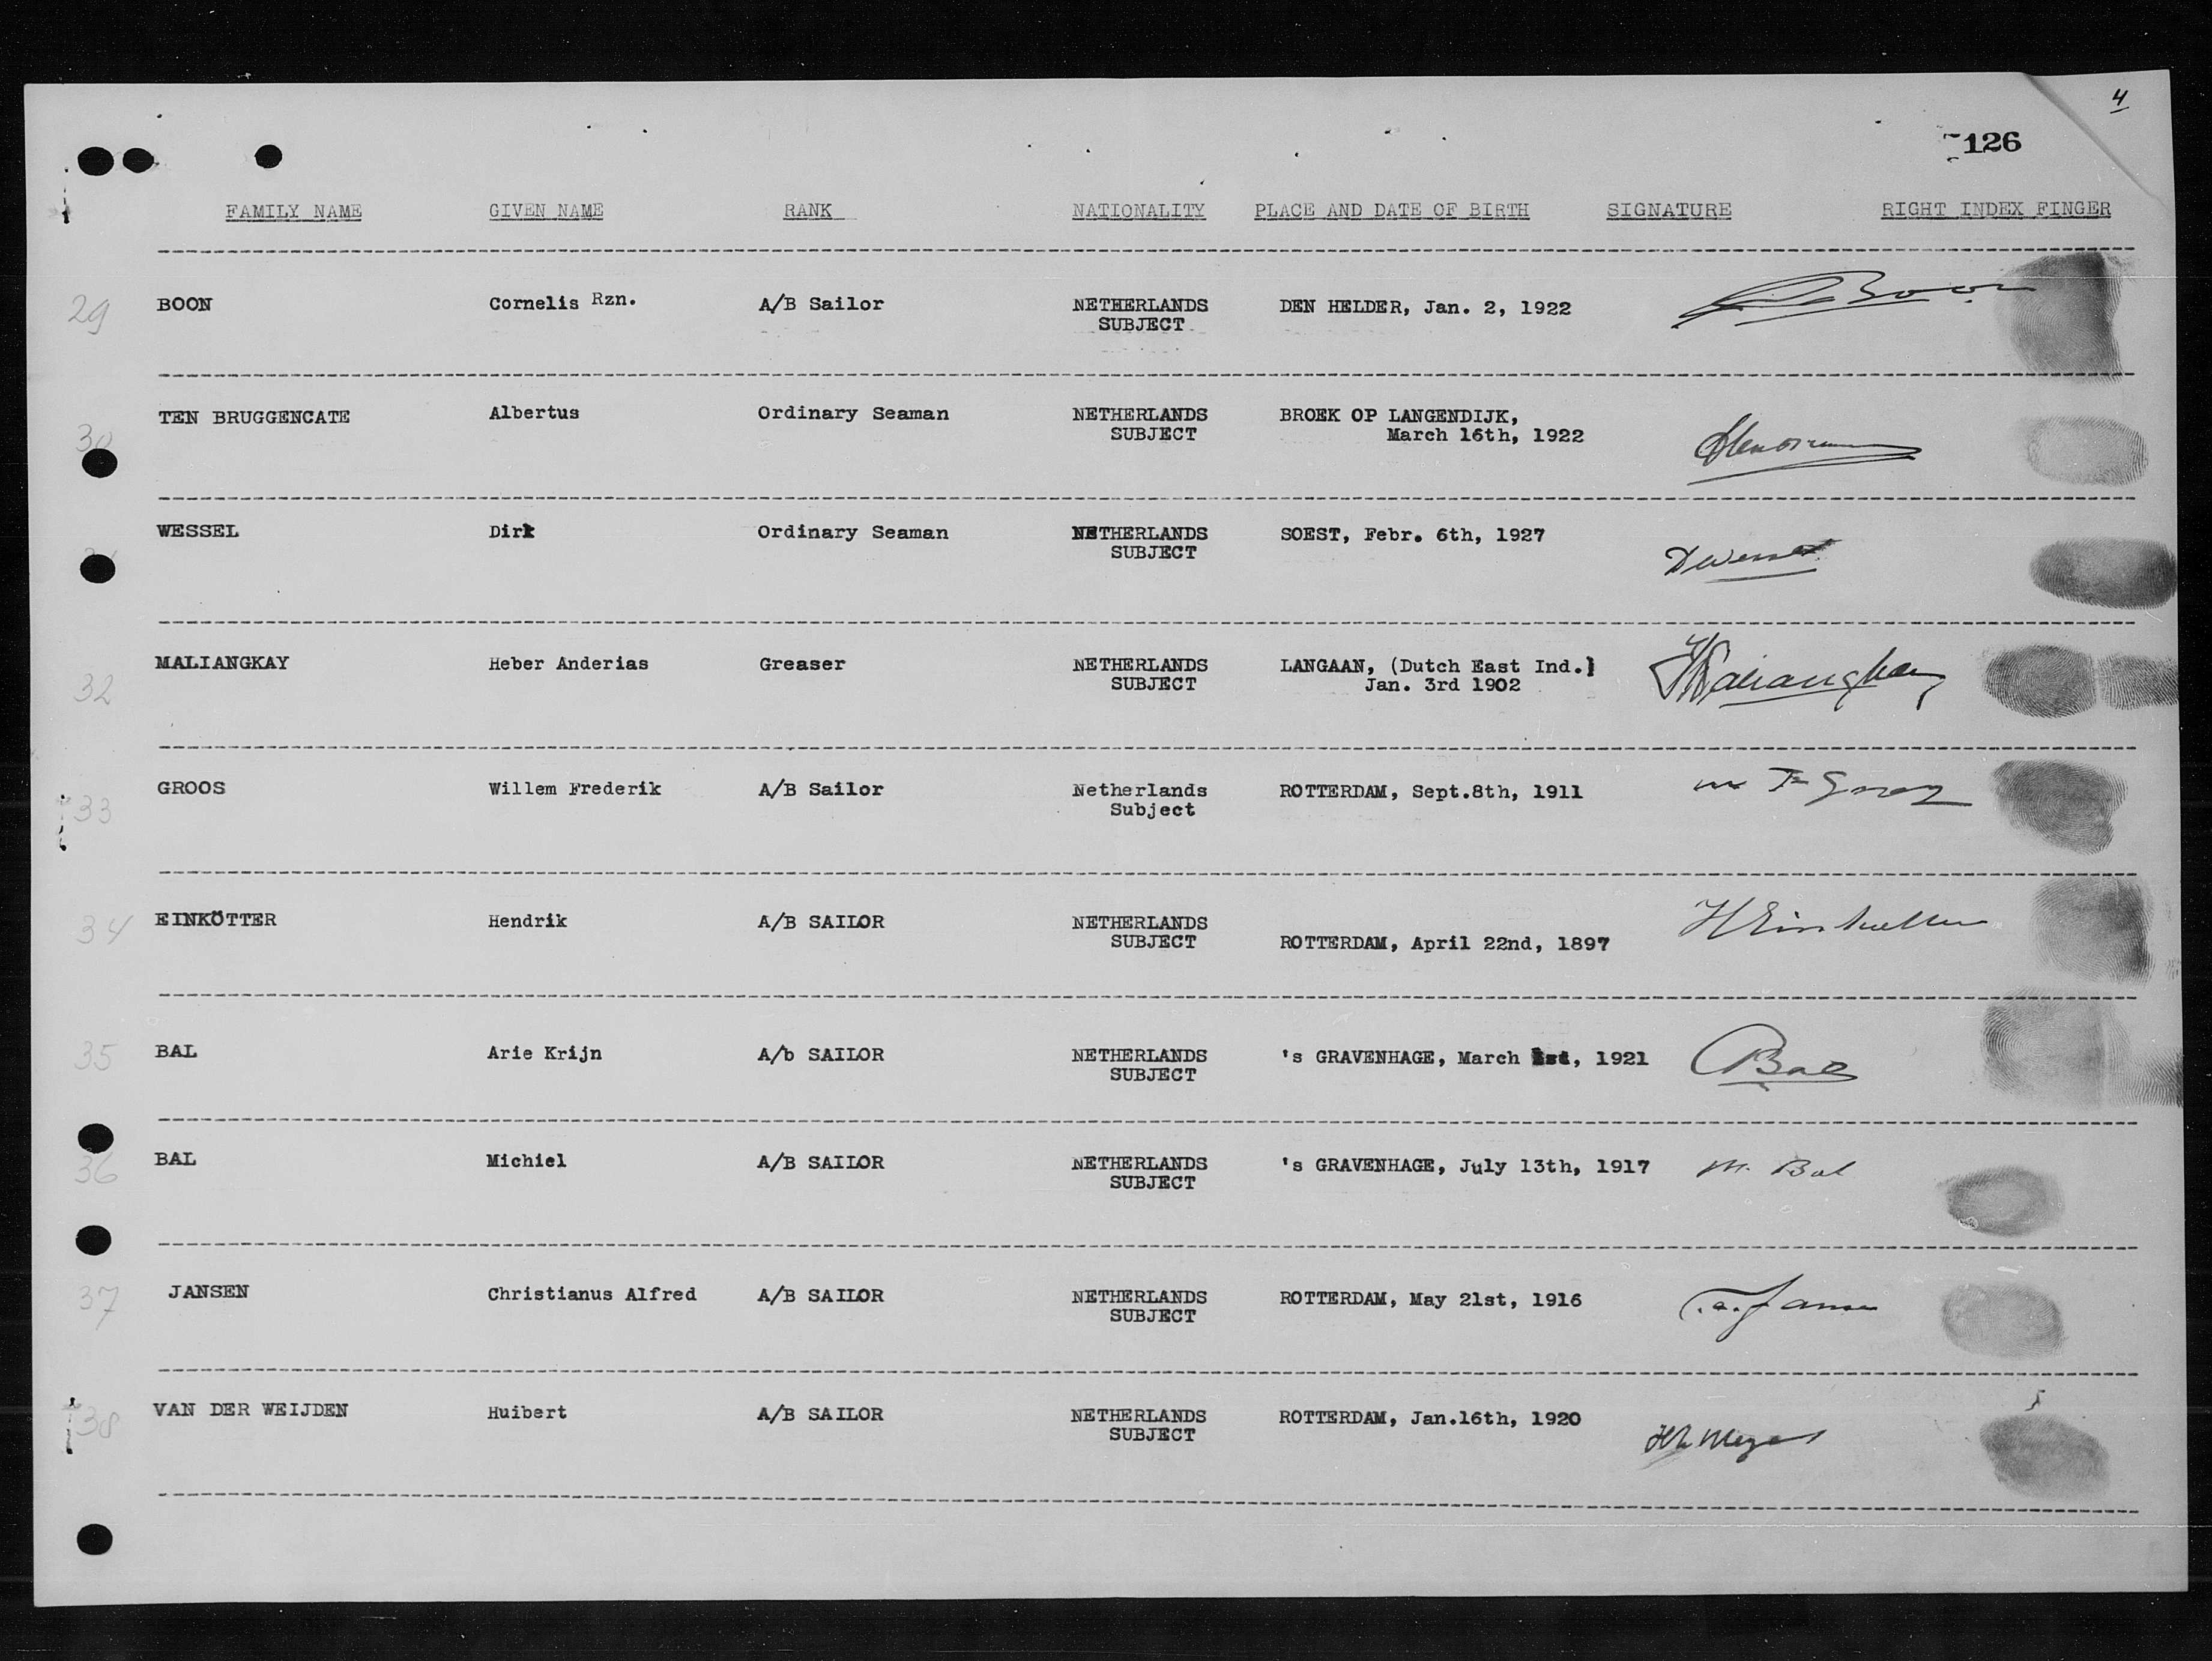 4
126
FAMILY NAME GIVEN NAME RANK NATIONALITY PLACE AND DATE OF BIRTH SIGNATURE RIGHT INDEX FINGER
29 BOON Cornelis Rzn. A/B Sailor NETHERLANDS DEN HELDER, Jan. 2, 1922 Boon
SUBJECT
30 TEN BRUGGENCATE Albertus Ordinary Seaman NETHERLANDS BROEK OP LANGENDIJK,
SUBJECT March 16th, 1922
WESSEL Dirk Ordinary Seaman NETHERLANDS SOEST, Febr. 6th, 1927
SUBJECT
D Wessel
32 MALIANGKAY Heber Anderias Greaser NETHERLANDS LANGAAN, (Dutch East Ind.)
SUBJECT Jan. 3rd 1902
33 GROOS Willem Frederik A/B Sailor Netherlands ROTTERDAM, Sept.8th, 1911
Subject
34 EINKÖTTER Hendrik A/B SAILOR NETHERLANDS
SUBJECT ROTTERDAM, April 22nd, 1897
35 BAL Arie Krijn A/b SAILOR NETHERLANDS 's GRAVENHAGE, March 1st, 1921 Bal
SUBJECT
36 BAL Michiel A/B SAILOR NETHERLANDS 's GRAVENHAGE, July 13th, 1917 M. Bal
SUBJECT
37 JANSEN Christianus Alfred A/B SAILOR NETHERLANDS ROTTERDAM, May 21st, 1916 C.A. Jansen
SUBJECT
38 VAN DER WEIJDEN Huibert A/B SAILOR NETHERLANDS ROTTERDAM, Jan.16th, 1920
SUBJECT